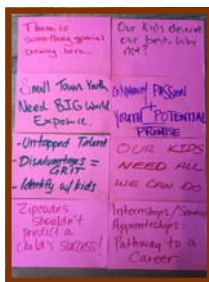 There is
something special
owing here...
Our Kids deserve
our best, why
not?
Small Town Youth
Need BIG World
Exposure.
COMMUNITY PASSION
+
YOUTH POTENTIAL
PROMISE
- Untapped Talent
- Disadvantages =
GRIT
- Identify w/ kids
OUR KIDS
NEED ALL
WE CAN DO
Zipcodes
Shouldn't
predict a
child's SUCCESS!
Internships/Services
Apprenticeships:
Pathway to a
Career